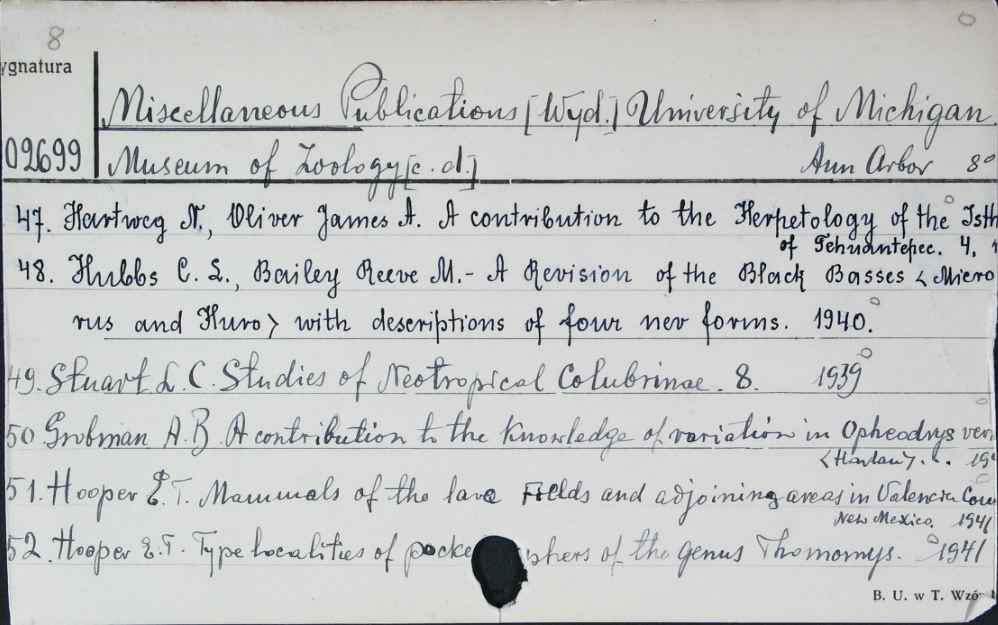 8
ygnatura
Miscellaneous Publications [Wyd.] University of Michigan.
09699
Museum of Zoology [c. d.] Ann Arbor 8°
47. Hartweg N., Oliver James A. A contribution to the Herpetology of the Isth
of Tehuantepec. 4.
48. Hubbs C. L., Bailey Reeve M. - A Revision of the Black Basses < Micro
rus and Huro > with descriptions of four nev forms. 1940.
49. Stuart L. C. Studies of Neotropical Colubrinae. 8. 1939
50 Grobman A. B. A contribution to the knowledge of variation in Opheodrys ver
<Harlan>. 19
51. Hooper E. T. Mammals of the lava Fields and adjoining areas in Valencia Cou
New Mexico. 1941
52. Hooper E. T. Type localities of pocke phers of the genus Thomomys. 1941
B. U. w T. Wzó